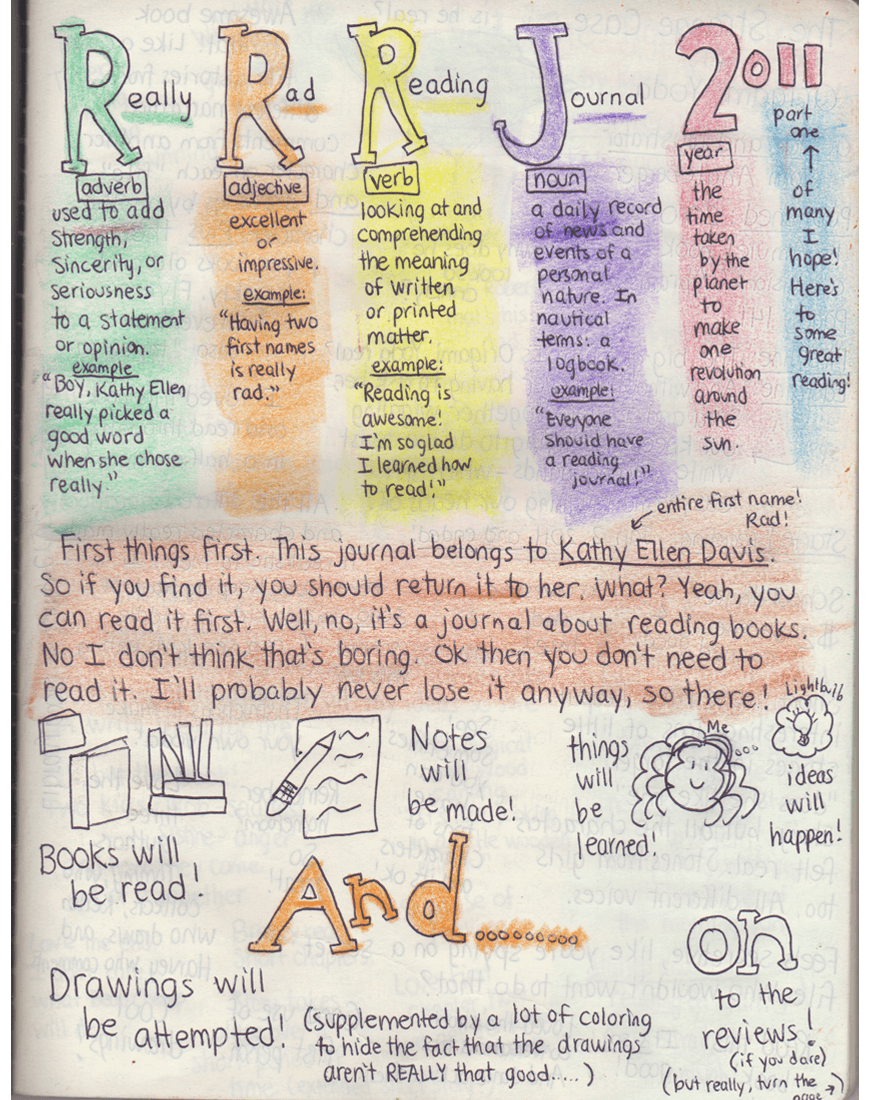 Really Rad Reading Journal 2011
adverb
used to add
strength,
sincerity, or
seriousness
to a statement
or opinion.
example
"Boy, Kathy Ellen
really picked a
good word
when she chose
really"
adjective
excellent
or
impressive.
example:
"Having two
first names
is really
rad."
verb
looking at and
comprehending
the meaning
of written
or printed
matter.
example:
"Reading is
awesome!
I'm so glad
I learned how
to read!"
noun
a daily record
of news and
events of a
personal
nature. In
nautical
terms: a
logbook.
example:
"Everyone
should have
a reading
journal!"
year
the
time
taken
by the
planet
to
make
one
revolution
around
the
sun.
part
one
of
many
I
hope!
Here's
to
some
great
reading!
entire first name!
Rad!
First things first. This journal belongs to Kathy Ellen Davis.
So if you find it, you should return it to her. What? Yeah, you
can read it first. Well, no, it's a journal about reading books.
No I don't think that's boring. Ok then you don't need to
read it. I'll probably never lose it anyway, so there!
Books will
be read!
Notes
will
be made!
things
will
be
learned!
Me
Lightbulb
ideas
will
happen!
And..........
Drawings will
be attempted!
(supplemented by a lot of coloring
to hide the fact that the drawings
aren't REALLY that good.....)
on
to the
reviews!
(if you dare)
(but really, turn the
page →)